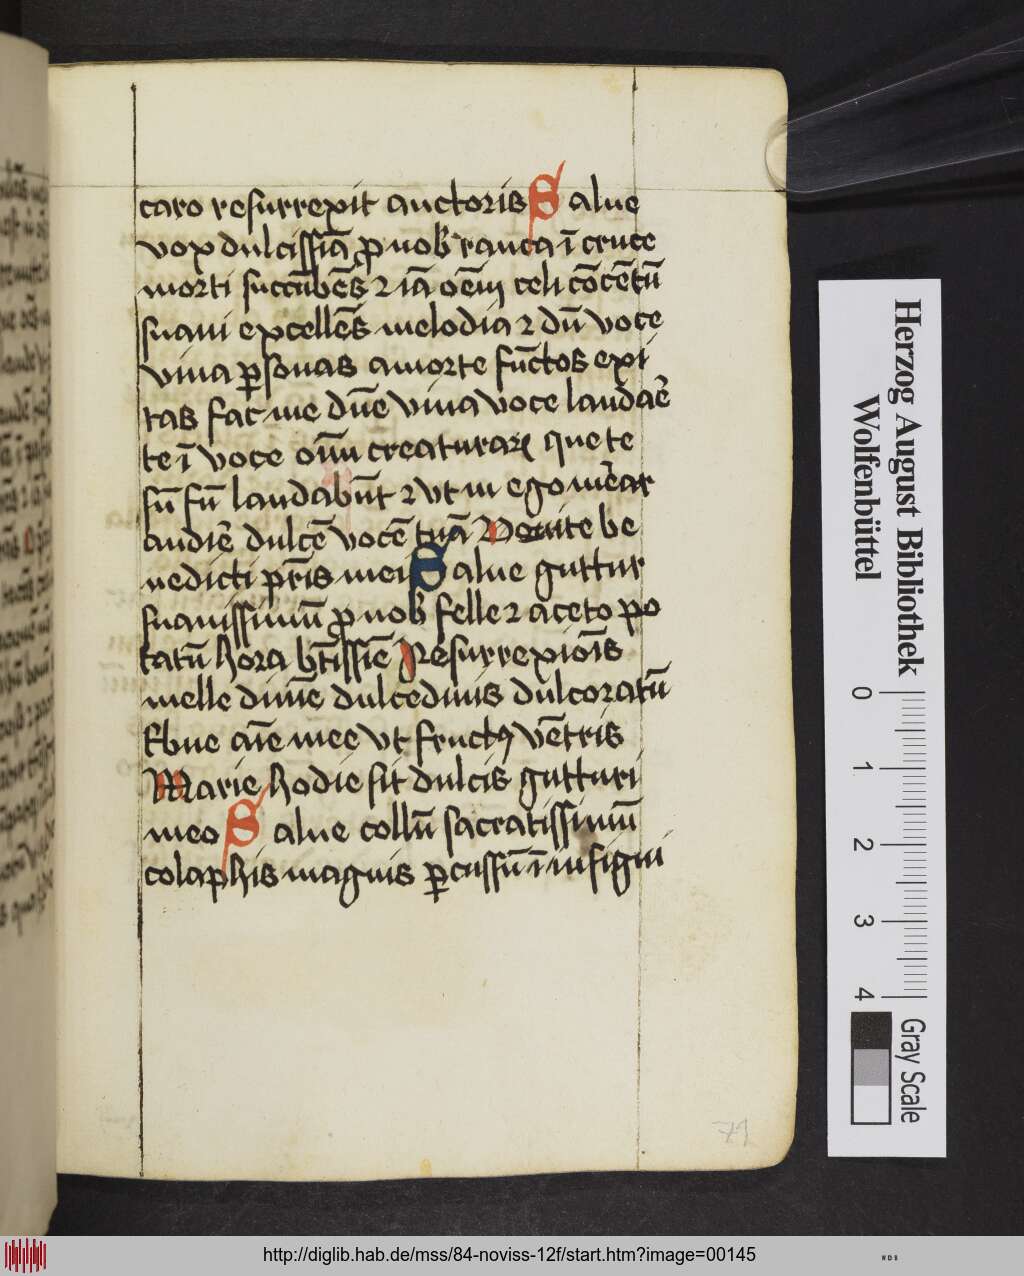 caro resurrexit auctoris Salue
vox dulcissīa ꝓ nob̄ rauca ī cruce
morti succūbēs ⁊ iā oēm celi cōcētū
suaui excellēs melodia ⁊ dū voce
viua ꝑsonas a morte fūctos exi
tas fac me dn̄e viua voce laudar̄e
te ī voce oīm creaturaꝝ que te
sū fū laudabūt ⁊ vt in ego mēar
audiē dulcē vocē tuā Venite be
nedicti pr̄is mei Salue guttur
suauissimū ꝓ nob̄ felle ⁊ aceto po
tatū hora bt̄issīē Resurrexiōīs
melle diuīe dulcedinis dulcoratū
aīe mee vt fructꝰ vētris
Marie hodie sit dulcis gutturi
meo Salue collū sacratissimū
colaphis magnis ꝑcussū ī insigni
71
Herzog August Bibliothek
Wolfenbüttel
0 1 2 3 4
Gray Scale
http://diglib.hab.de/mss/84-noviss-12f/start.htm?image=00145